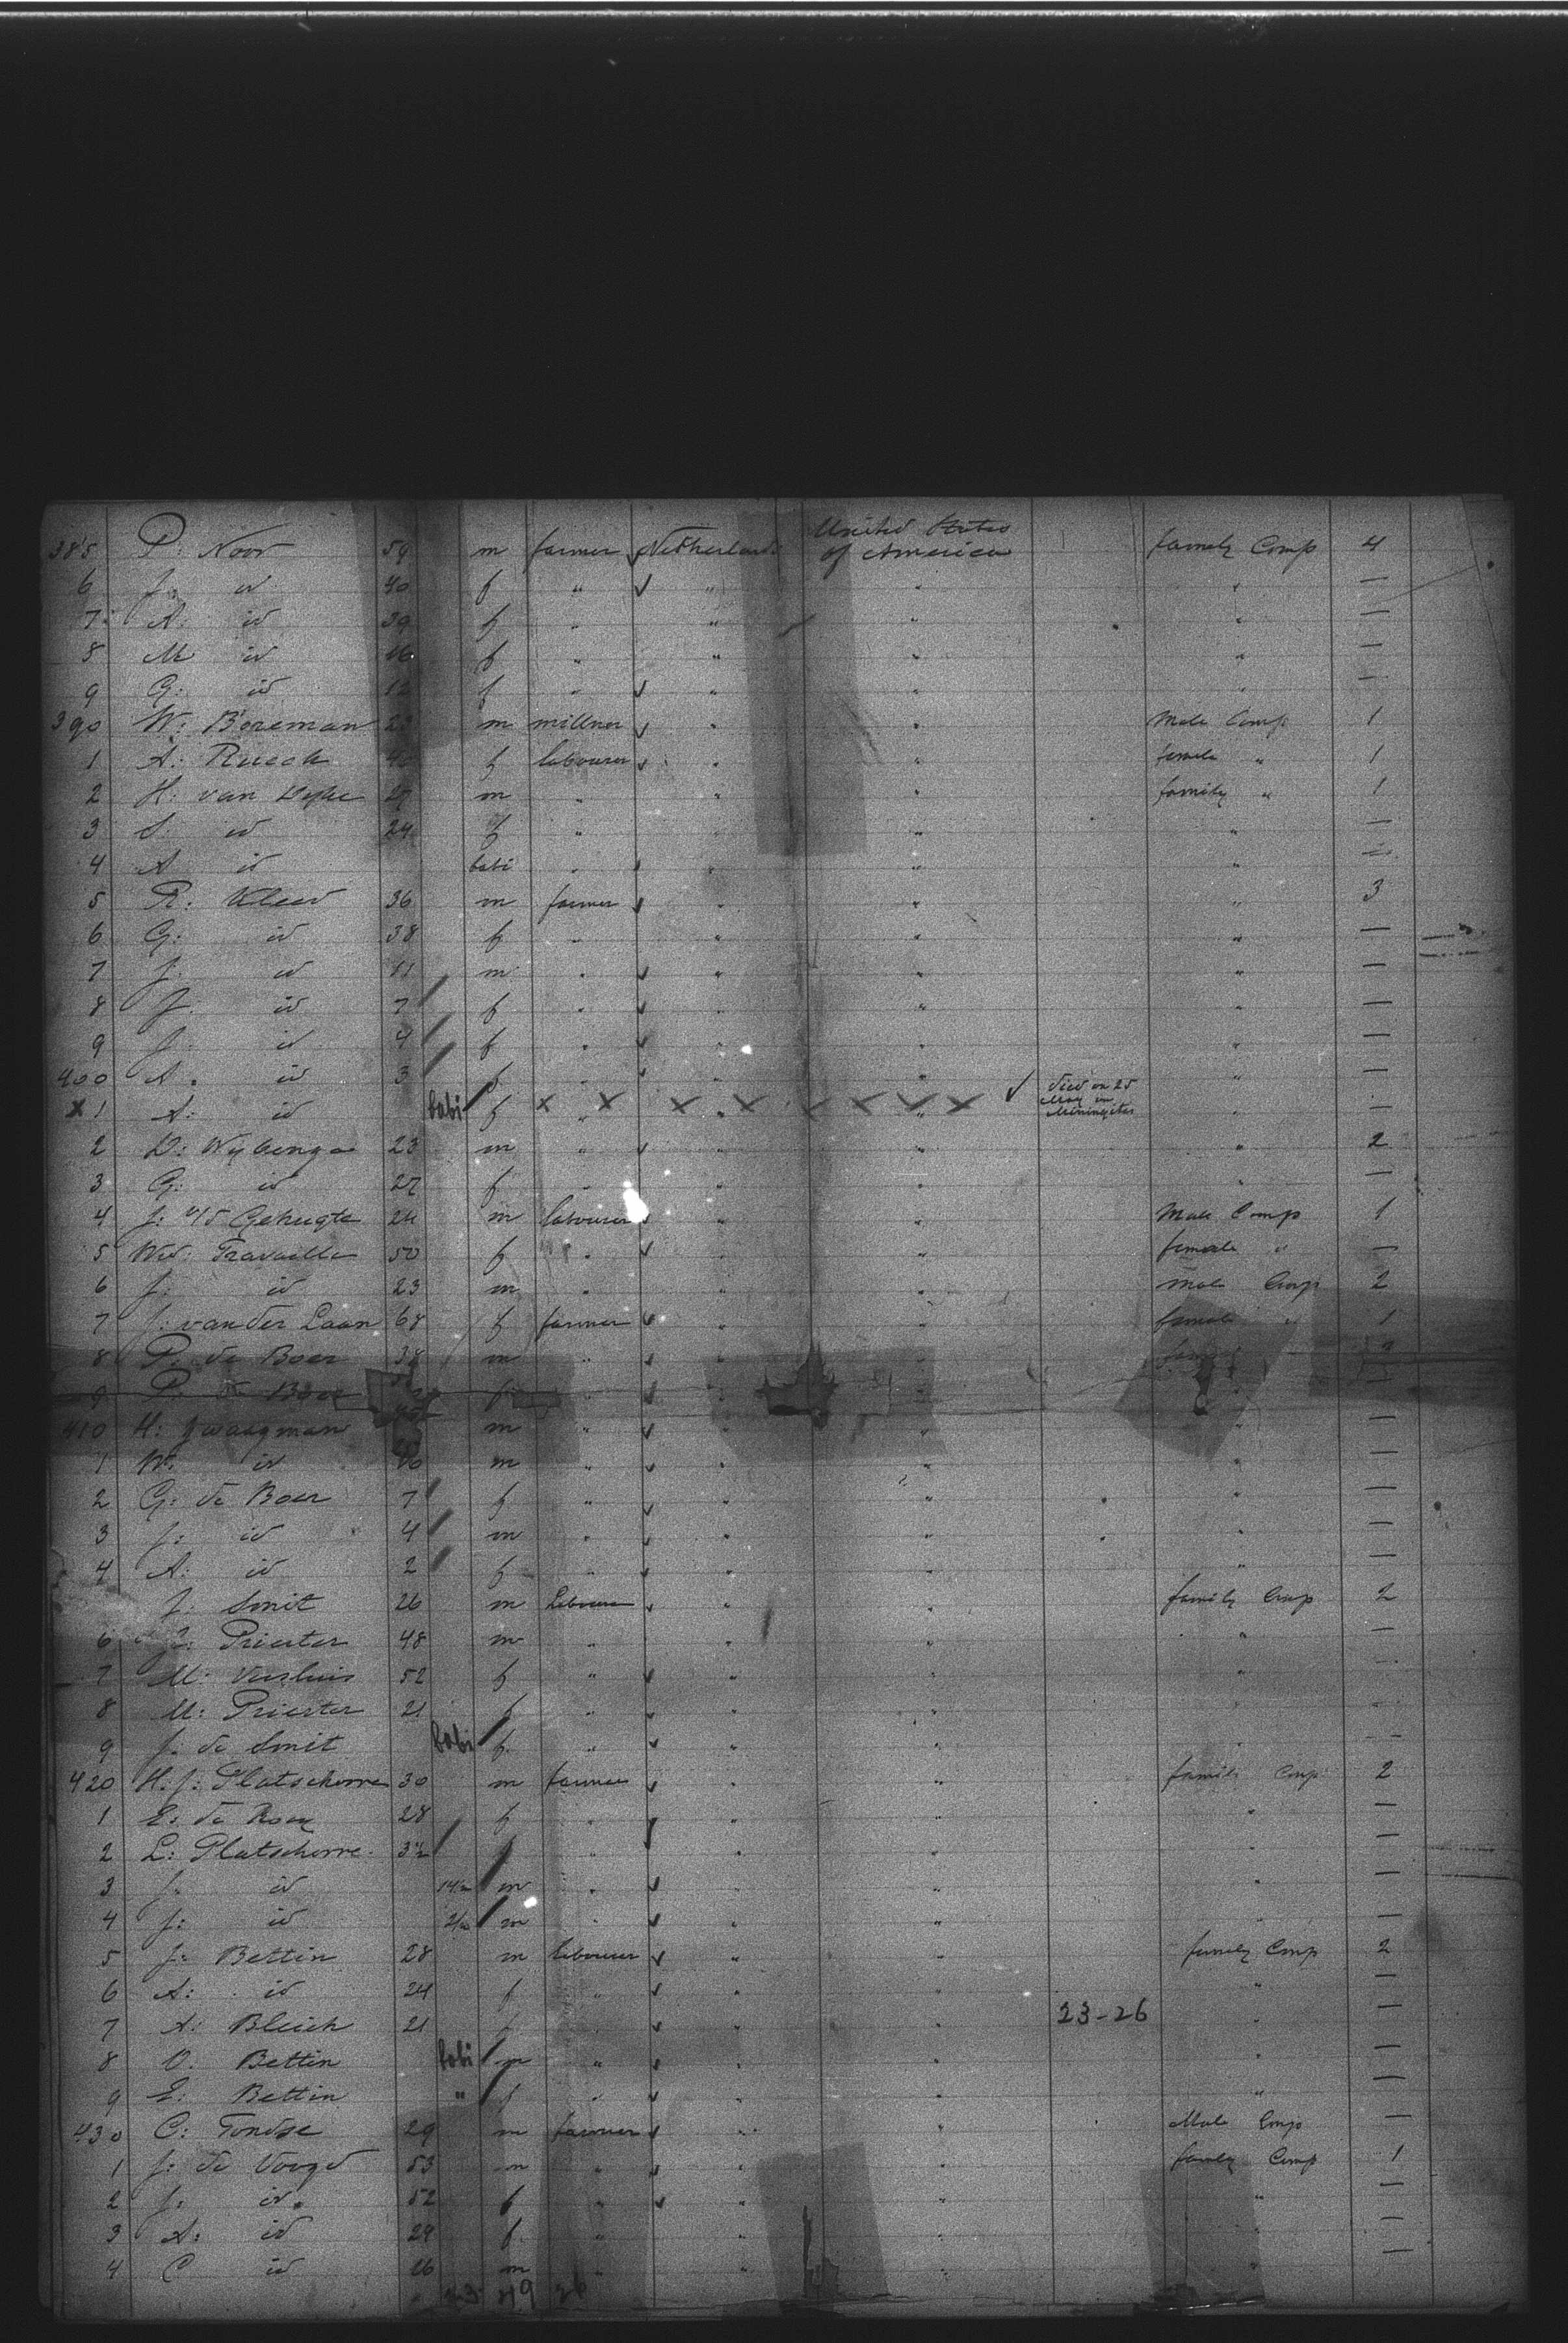 385 P: Noor 59 m farmer Netherlands United States of America famely Comp 4
6 J: id 40 f " " " " —
7 A: id 39 f " " " " —
8 M id 16 f " " " " —
9 G: id 12 f " " " " —
390 W: Boreman m millner " " Male Comp 1
1 A: Rueck f labourer " " female " 1
2 H: van Dyke 29 m " " " family " 1
3 S: id 24 f " " " " —
4 A id babi " " " " —
5 R: Kleed 36 m farmer " " " 3
6 G: id 38 f " " " " —
7 J: id 11 m " " " " —
8 J: id 7 f " " " " —
9 J: id 4 f " " " " —
400 A: id 3 f " " " " —
X 1 A: id babi f X " X X X X X X X died on 25 May on Miningites " —
2 D: Wybenga 23 m " " " " 2
3 G: id 27 f " " " " —
4 J: v/d Gehugte 24 m labourer " " Male Comp 1
5 Wed: Travaille 50 f " " " female " —
6 J: id 23 m " " " male Comp 2
7 J: van der Laan 68 f farmer " " female " 1
8 P: de Boer 38 m " " "
9 P: de Boer f " " " —
410 H: Zwaagman m " " " " —
1 W: id 16 m " " " " —
2 G: de Boer 7 f " " " " —
3 J: id 4 m " " " " —
4 A: id 2 f " " " " —
J: Smit 26 m Labourer " " family Comp 2
6 Priester 48 m " " " " —
7 M: Versluis 52 f " " " " —
8 M: Priester 21 f " " " " —
9 J: de Smit babi f " " " " —
420 H: J: Platschorre 30 m farmer " " family Comp 2
1 E: de Roey 28 f " " " " —
2 L: Platschorre 3½ f " " " " —
3 J: id m " " " " —
4 J: id m " " " " —
5 J: Bettin 28 m labourer " " famely Comp 2
6 A: id 24 f " " " " —
7 A: Bleich 21 f " " " 23-26 " —
8 O. Bettin babi m " " " " —
9 E: Bettin " f " " " " —
430 C: Tondse 29 m farmer " " Male Comp —
1 J: de Voogd 53 m " " " famely Comp 1
2 J: id 52 f " " " " —
3 A: id 24 f " " " " —
4 C id 16 m " " " " —
23 49 26